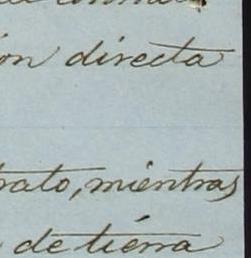 ón directa
rato, mientras
de tierra